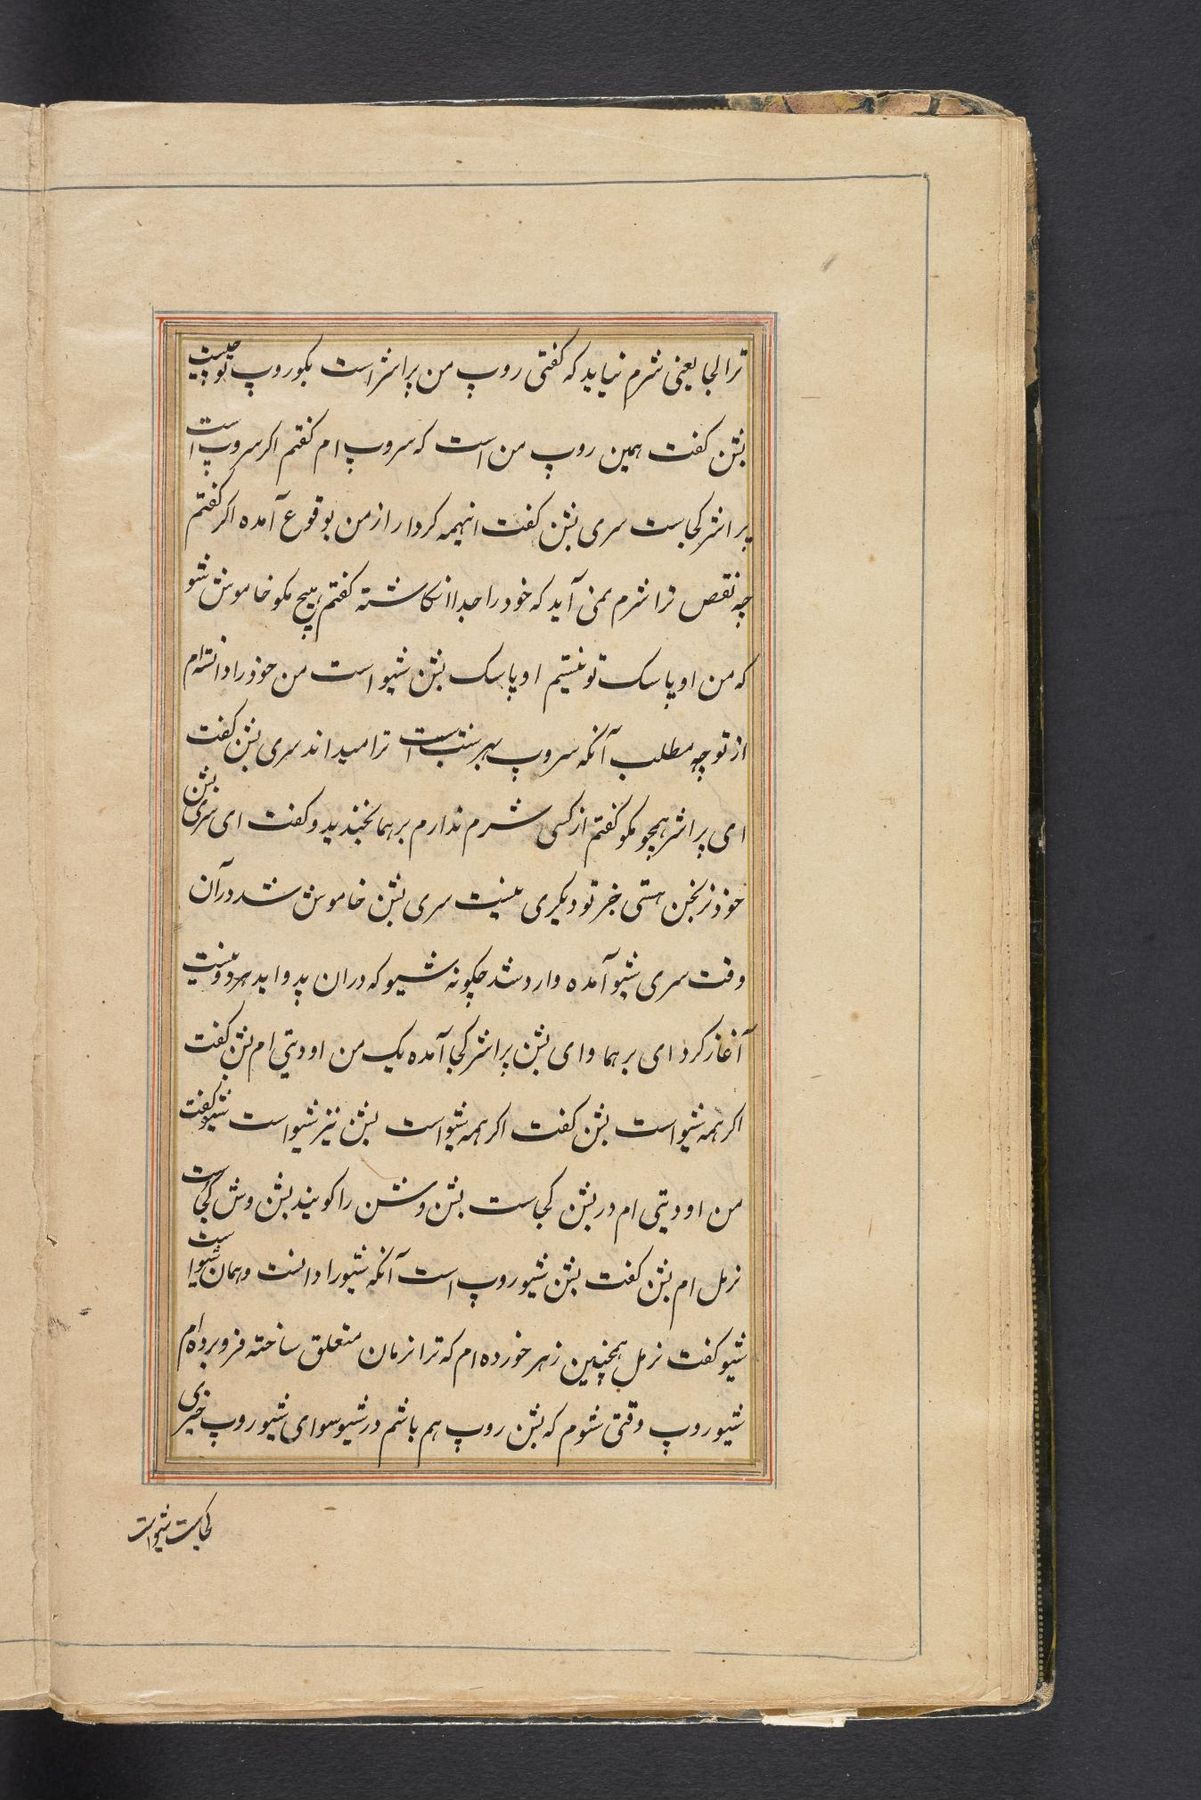 ترا لجا یعنی شرم نیاید که گفتی روپ من پرانشر است بگو روپ تو چیست
بشن گفت همین روپ من است که سروپ ام گفتم اگر سروپ است
پرانشر کجاست سری بشن گفت اینهمه کردار از من بوقوع آمده اگر گفتم
چه نقص ترا شرم نمی آید که خود را جدا انگاشته گفتم هیچ مگو خاموش شو
که من اوپاسک تو نیستم اوپاسک بشن شیو است من خود را دانسته ام
از تو چه مطلب آنکه سروپ است ترا میداند سری بشن گفت
ای پرانشر همچو مگو گفتم از کسی شرم ندارم برهما بخندید و گفت ای سری بشن
خود نرنجن هستی جز تو دیگری نیست سری بشن خاموش شد در آن
وقت سری شیو آمده وارد شد چگونه شیو که در ان پد و اپد هر دو نیست
آغاز کرد ای برهما و ای بشن پرانشر کجا آمده یک من اودیتی ام بشن گفت
اگر همه شیو است بشن گفت اگر همه شیو است بشن نیز شیو است شیو گفت
من اودیتی ام در بشن کجاست بشن وشن را گویند بشن وش کجاست
نرمل ام بشن گفت بشن شیو روپ است آنکه شیو را دانست و همان شیو است
شیو گفت نرمل همچنین زهر خورده ام که ترا نرمان متعلق ساخته فرو برده ام
شیو روپ وقتی شوم که بشن روپ هم باشم در شیو سوای شیو روپ خبری
کجاست شیو است